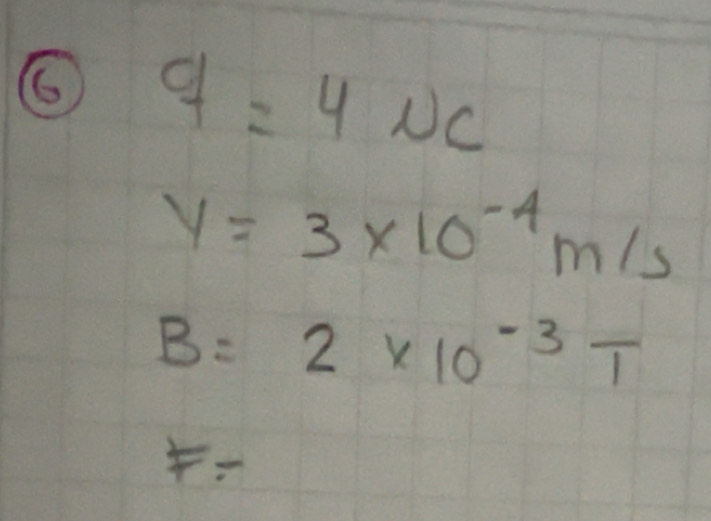 6 q = 4 NC
V = 3 × 10⁻⁴ m/s
B = 2 × 10⁻³ T
F =